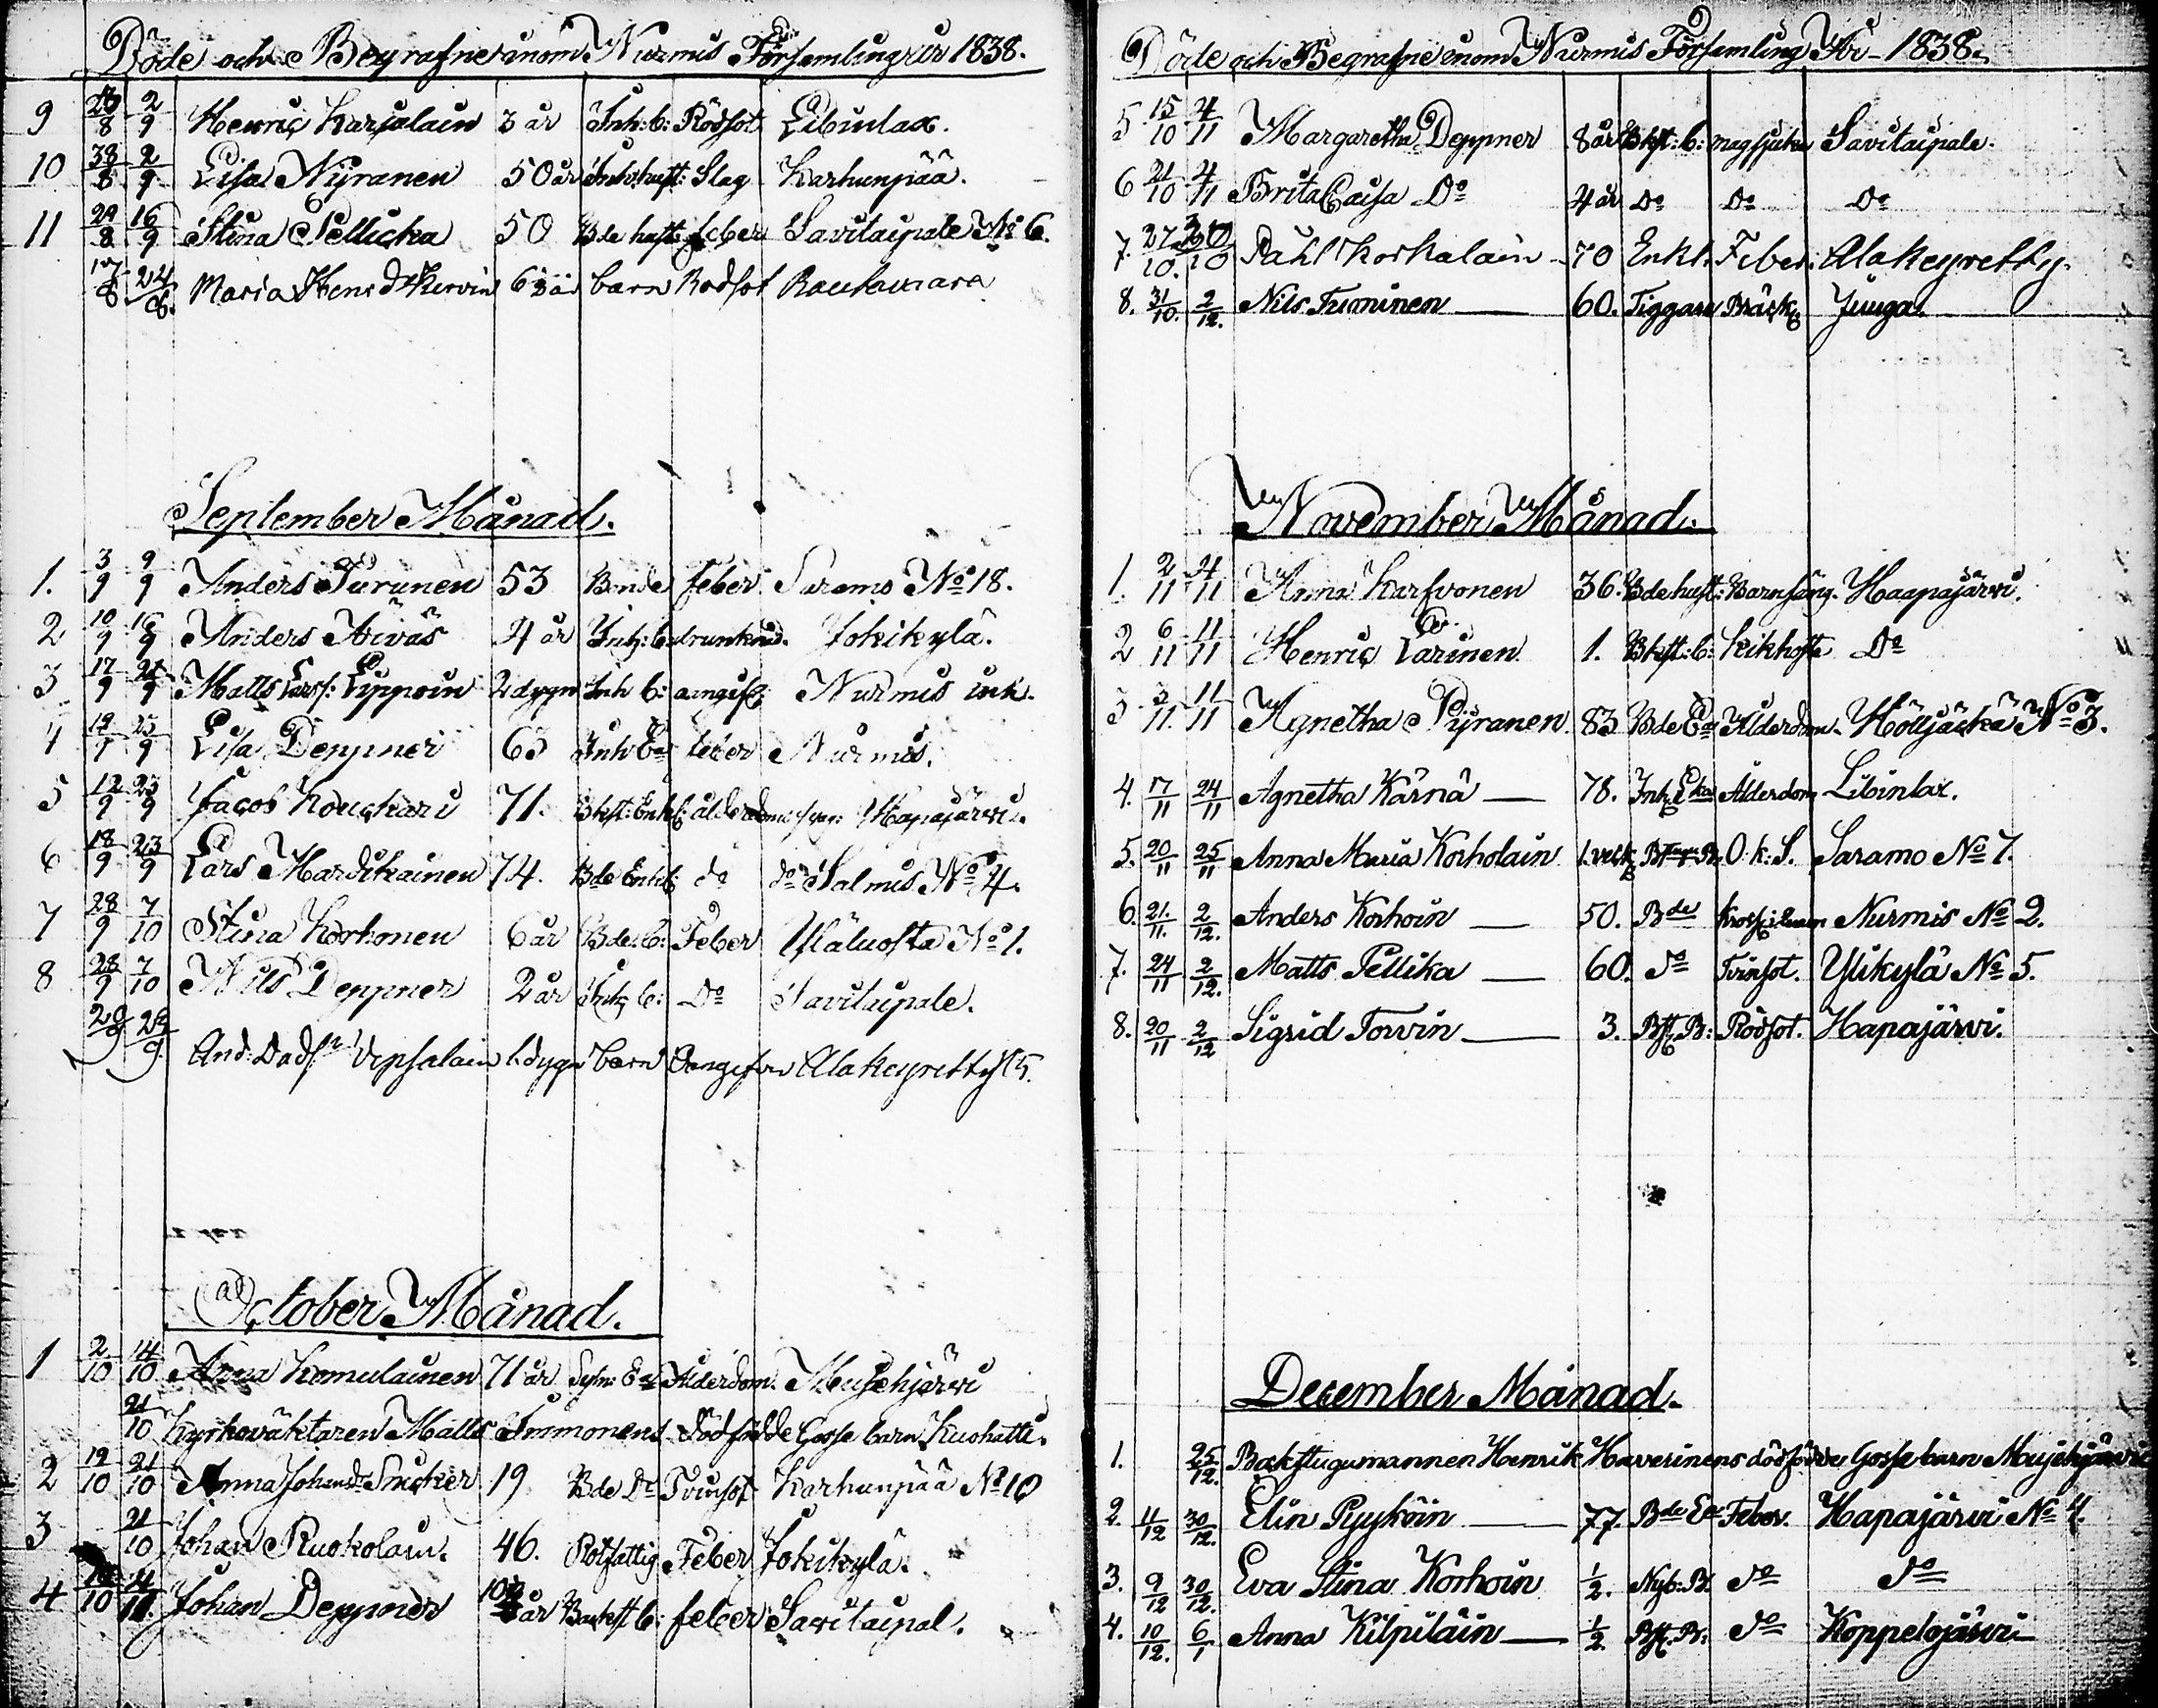 Döde och Begrafne inom Nurmis Församling år 1838.
9 8 2/9 Henric Karjalain 3 år Inh: b: Rödsot Libinlax.
10 8 2/9 Lisa Nÿranen 50 år Inh: hust: Slag Karhunpää.
11 29/8 16/9 Stina Pellicka 50 Bde hust: feber Savitaipale No 6.
17/8 24/8. Maria Hens dr Kervin 6 år barn Rödsot Rautawaara
September Månad.
1. 3/9 9/9 Anders Turunen 53 Bonde feber Saramo No 18.
2 10/9 16/9 Anders Äiväs 4 år Inh: b: drunknad. Jokikylä.
3 17/9 9 Matts Larss: Lippoin 2 dygn Inh b: aangifv: Nurmis inh.
4 19/9 23/9 Lisa Deppner 63 Inh Ea feber Nurmis.
5 12/9 23/9 Jacob Kouckari 71. Bkst: Enkl: ålderdoms Hapajärwi.
6 18/9 23/9 Lars Mardikainen 74. Bde Enkl: do do Salmis No 4.
7 28/9 7/10 Stina Korhonen 6 år Bde: b: Feber No 1.
8 28/9 7/10 Nils Deppner 2 år Inh: b: Do Savitaipale.
29/9 29/9. And: Dads Vepsalain 1. dygn barn Oangifven Alakeyretty 15.
October Månad.
1 2/10 14/10 Anna Komulainen 71 år Sytn: Ea Ålderdom. Mujehjärwi
21/10 Kyrkoväktaren Matts Immonens dödfödde Gosse barn Kuohatti.
2 19/10 21/10 Anna Johans dr Smicker 19 Bde Dr Tvinsot Karhunpää No 10
3 21/10 Johan Ruokolain. 46. Rotfattig Feber Jokikylä.
4 10 4/11. Johan Deppner 10 år Backst b: feber Savitaipal.
Döde och Begrafne inom Nurmis Församling År 1838.
5 15/10 4/11 Margaretha Deppner 8 år Bkst: b: magsjuka Savitaipale.
6 21/10 4/11 Brita Caisa Do 4 år Do Do Do
7. 27/10. 10 Påhl Korhalain 70 Enkl. Feber. Alakeyretty.
8. 31/10. 2/12. Nils Tuminen 60. Tiggare Bråck Juuga.
November Månad.
1. 2/11 4/11 Anna Karfvonen 36. Bde hust: Barnsäng. Haapajärwi.
2 6/11 11/11 Henric Larinen 1. Bkst: b: Kikhosta Do
3 5/11. 11/11 Agnetha Pÿranen 83 Bde Ea Ålderdom. Höljäkä No 3.
4. 17/11 24/11 Agnetha Kärnä 78. Inh Eka Ålderdom Libinlax.
5. 20/11 25/11 Anna Maria Korholain 1. veck B: O. k: S. Saramo No 7.
6. 21./11. 2/12. Anders Korhoin 50. Bde Nurmis No 2.
7. 24/11 2/12. Matts Pellika 60. do Tvinsot. Ylikylä No 5.
8. 20/11 2/12 Sigrid Torvin 3. Bst B: Rödsot. Hapajärvi.
December Månad.
1. 25/12. Backstugumannen Henrik Haverinens dödfödde Gosse barn Mujehjärvi
2. 4/12 30/12. Elin Pyyköin 77. Bde Ea Feber. Hapajärvi No 4.
3. 9/12 30/12. Eva Stina Korhoin 1/2. Nyb: B. do do
4. 10/12. 6/1 Anna Kilpiläin 1/2. Bst. B: do Koppelojärvi